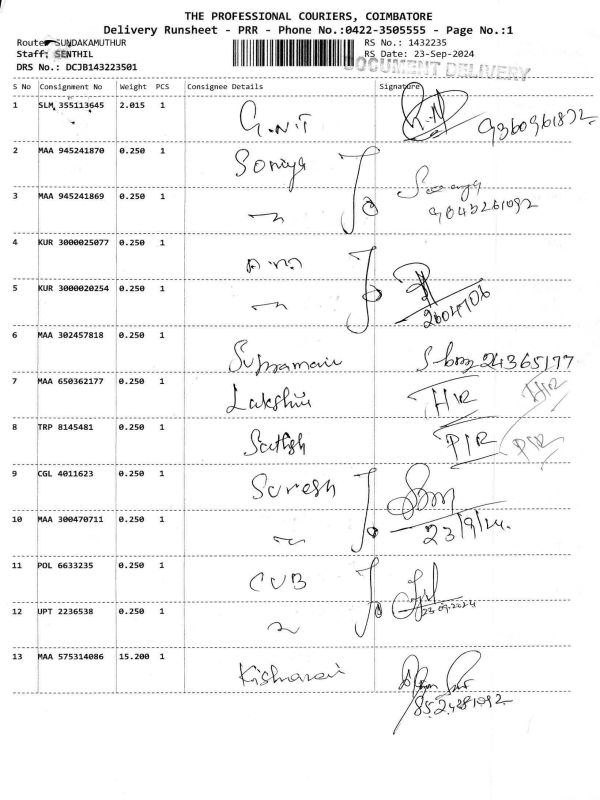 THE PROFESSIONAL COURIERS, COIMBATORE
Delivery Runsheet - PRR - Phone No.:0422-3505555 - Page No.:1
Route: SUNDAKAMUTHUR
RS No.: 1432235
Staff: SENTHIL
RS Date: 23-Sep-2024
DRS No.: DCJB143223501
DOCUMENT DELIVERY
S No Consignment No Weight PCS Consignee Details Signature
1 SLM 355113645 2.015 1 G.N.T 9360961872
2 MAA 945241870 0.250 1 Soniya
3 MAA 945241869 0.250 1
4 KUR 3000025077 0.250 1
5 KUR 3000020254 0.250 1
6 MAA 302457818 0.250 1 24365177
7 MAA 650362177 0.250 1 HIR HIR
8 TRP 8145481 0.250 1 Sathish PIR PIR
9 CGL 4011623 0.250 1 Suresh
10 MAA 300470711 0.250 1 23/9/24.
11 POL 6633235 0.250 1 CUB
12 UPT 2236538 0.250 1 23.09.2024
13 MAA 575314086 15.200 1